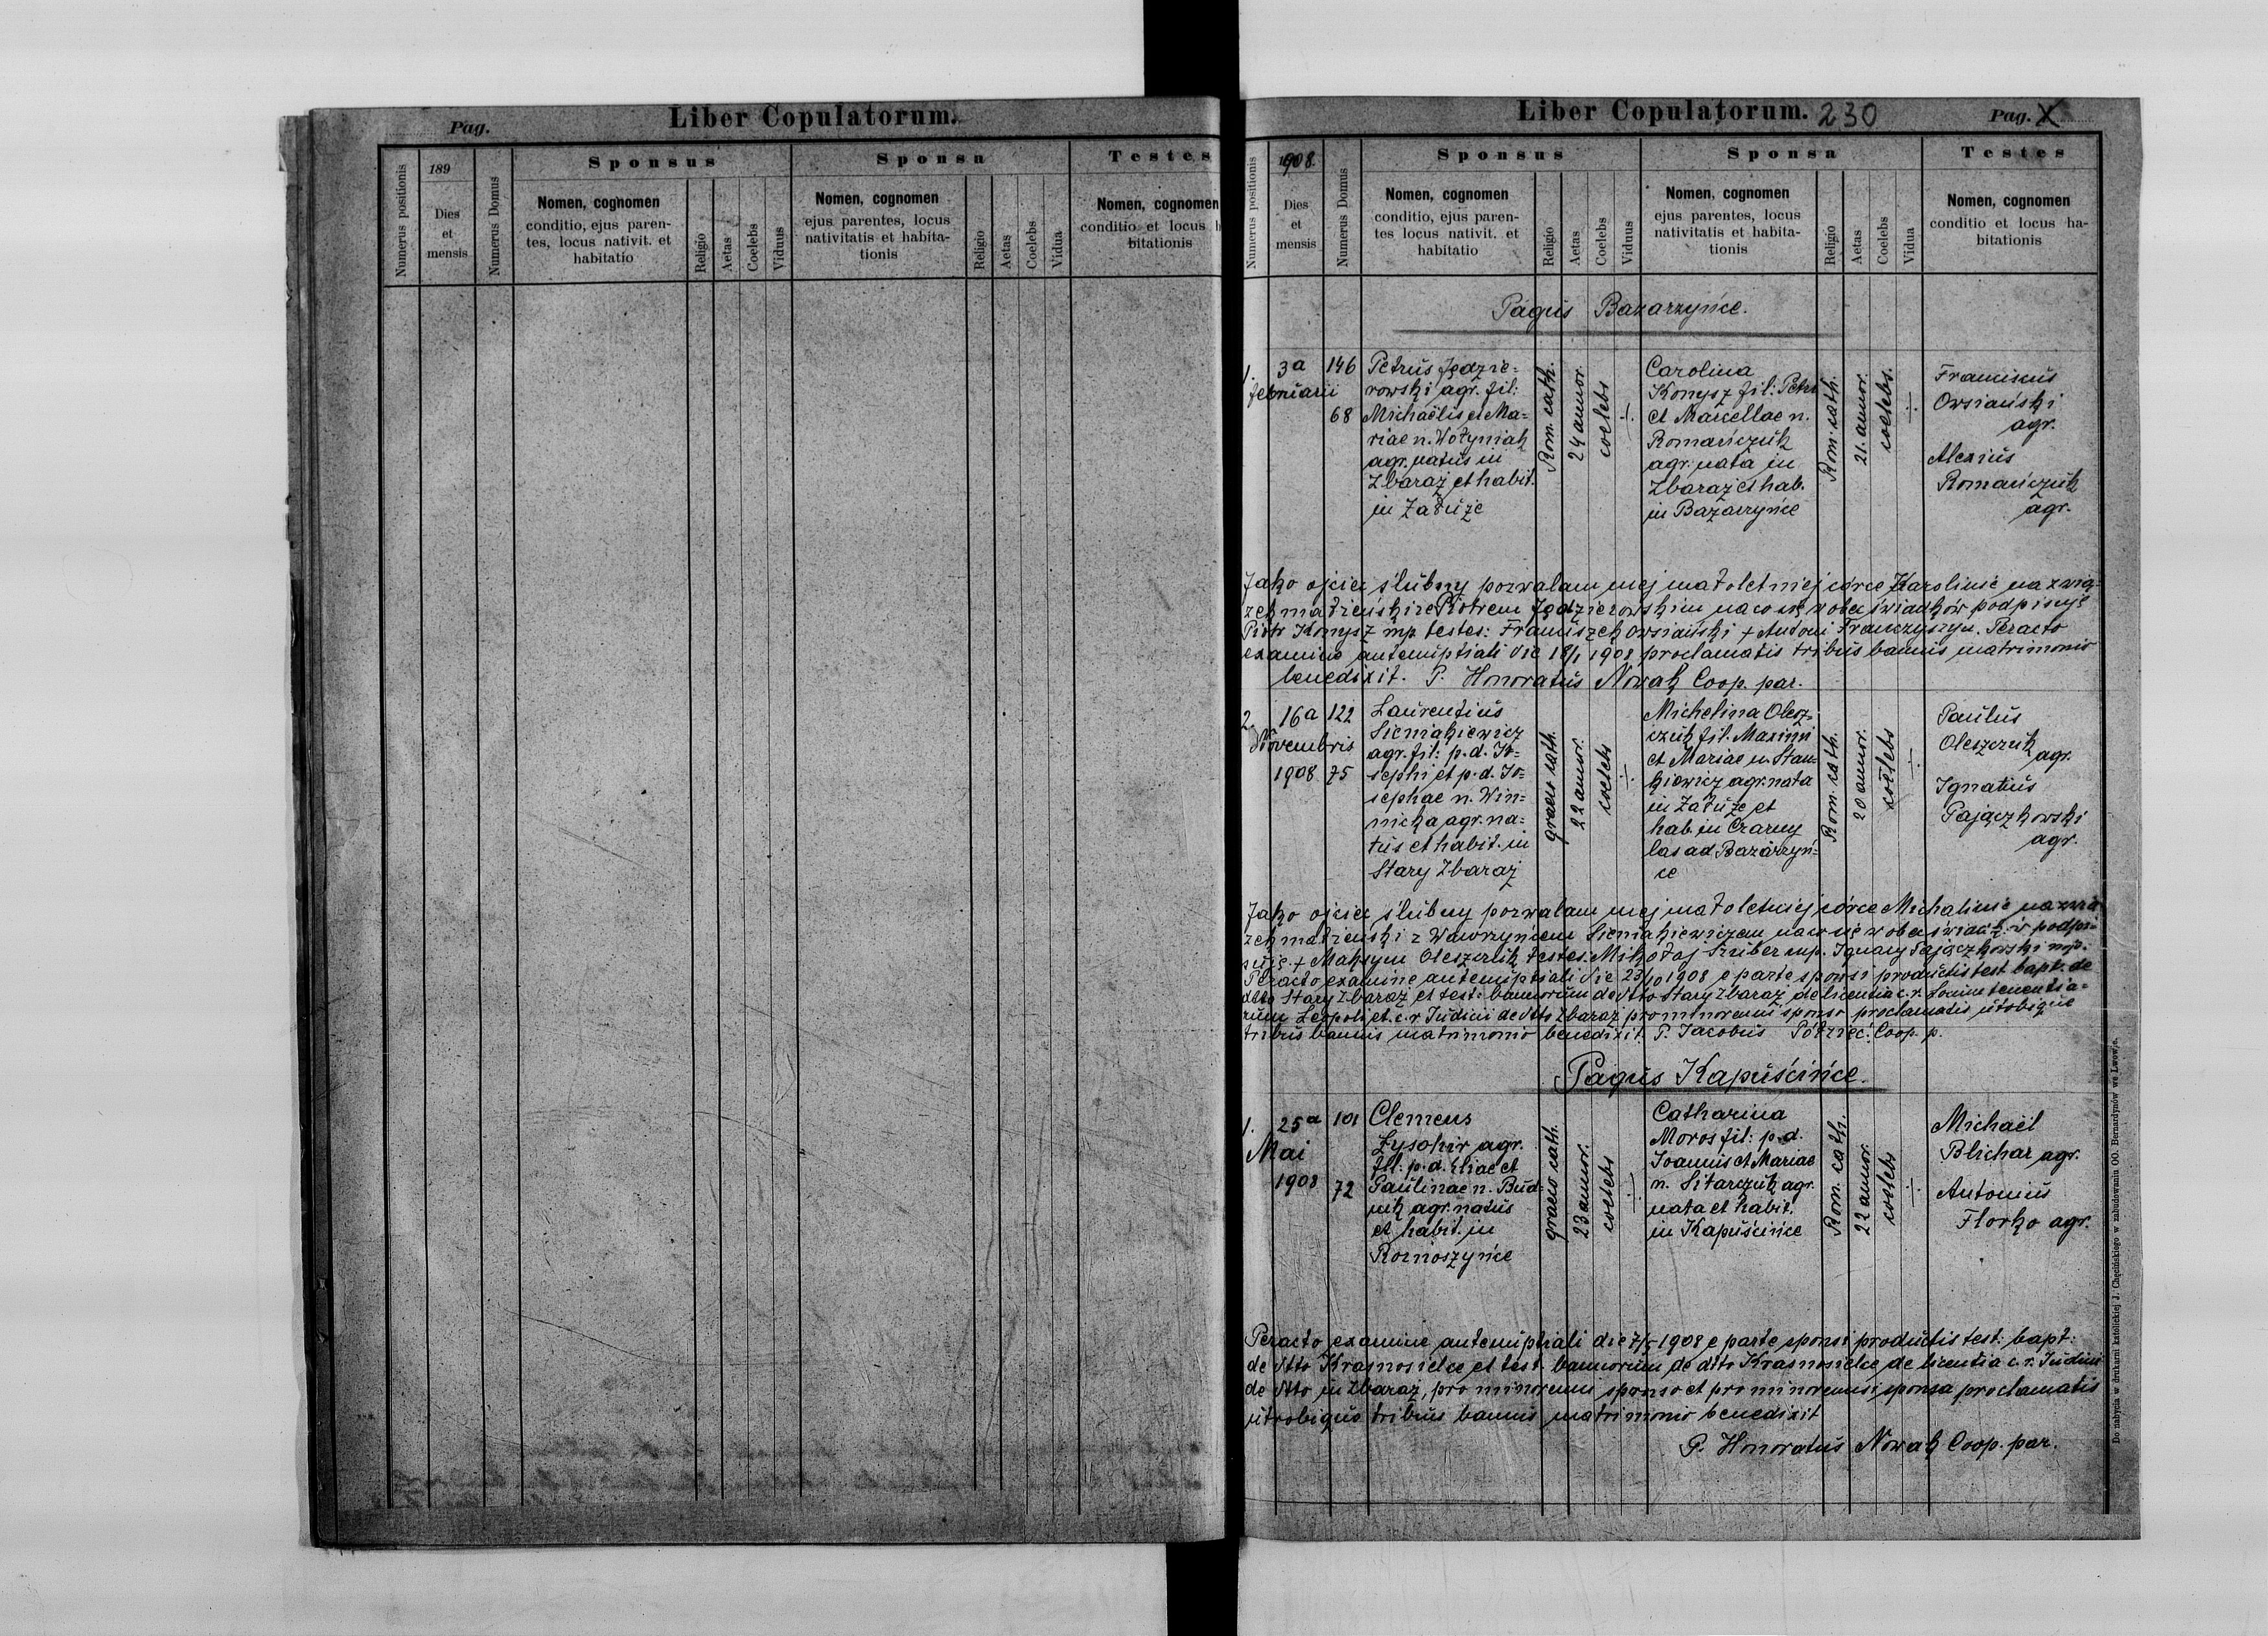 Liber Copulatorum.
Pag.
Numerus positionis
189
Dies
et
mensis
Numerus Domus
Sponsus
Nomen, cognomen
conditio, ejus paren-
tes, locus nativit. et
habitatio
Religio
Aetas
Coelebs
Viduus
Sponsa
Nomen, cognomen
ejus parentes, locus
nativitatis et habita-
tionis
Religio
Aetas
Coelebs
Vidua
Testes
Nomen, cognomen
conditio et locus h
bitationis
Liber Copulatorum. 230
Pag. X
Numerus positionis
1908.
Dies
et
mensis
Numerus Domus
Sponsus
Nomen, cognomen
conditio, ejus paren-
tes locus nativit. et
habitatio
Religio
Aetas
Coelebs
Viduus
Sponsa
Nomen, cognomen
ejus parentes, locus
nativitatis et habita-
tionis
Religio
Aetas
Coelebs
Vidua
Testes
Nomen, cognomen
conditio et locus ha-
bitationis
Pagus Bazarzyńce.
1.
3a
februarii
146
68
Petrus Jędzie=
rowski agr. fil:
Michaelis et Ma=
riae n. Wołyniak
agr. natus in
Zbaraż et habit.
in Załuże
Rom. cath.
24 annor.
coelebs
÷
Carolina
Konysz fil: Petri
et Marcellae n.
Romańczuk
agr. nata in
Zbaraż et hab.
in Bazarzyńce
Rom. cath.
21. annor.
coelebs.
÷
Franciscus
Owsiański
agr.
Alexius
Romańczuk
agr.
Jako ojciec ślubny pozwalam mej małoletniej córce Karolinie na zwią=
zek małżeński ze Piotrem Jędzierowskim na co się w obec świadków podpisuję
Piotr Konysz mp testes: Franciszek Owsiański + Antoni Franczyszyn. Peracto
examine antenuptiali die 18/1 1908 proclamatis tribus bannis matrimonio
benedixit. P. Honoratus Nowak Coop. par.
2.
16a
Novembris
1908
122
75
Laurentius
Sieniakiewicz
agr. fil: p. d. Jo=
sephi et p. d. Jo=
sephae n. Win=
nicka agr. na=
tus et habit. in
Stary Zbaraż
graeco cath.
22 annor.
coelebs
÷
Michelina Olesz=
czuk fil. Maximi
et Mariae n. Stan=
kiewicz agr. nata
in Załuże et
hab. in Czarny
las ad Bazarzyń=
ce
Rom. cath.
20 annor.
coelebs
÷
Paulus
Oleszczuk
agr.
Ignatius
Pajączkowski
agr.
Jako ojciec ślubny pozwalam mej małoletniej córce Michalinie na zwią
zek małżeński z Wawrzyńcem Sieniakiewiczem na co się w obec świadków podpi=
suję. + Maksym Oleszczuk testes: Mikołaj Szuber mp. Ignacy Pajączkowski mp.
Peracto examine antenuptiali die 23/10 1908 e parte sponsi productis test bapt. de
dtto Stary Zbaraż et test: bannorum de dtto Stary Zbaraż de licentia c. r.
Leopoli et c. r. Judicii de dtto Zbaraż pro minorenni sponso proclamatis utobique
tribus bannis matrimonio benedixit. P. Jacobus Półzięć. Coop. p.
Pagus Kapuścińce.
1.
25a
Mai
1908
101
72
Clemens
Łysohir agr.
fil: p. d. Eliae et
Paulinae n. Bud=
nik agr. natus
et habit. in
Roznoszyńce
graeco cath.
23 annor.
coelebs
÷
Catharina
Moros fil: p. d.
Joannis et Mariae
n. Sitarczuk agr.
nata et habit.
in Kapuścińce
Rom. cath.
22 annor.
coelebs
÷
Michael
Blichar agr.
Antonius
Florko agr.
Peracto examine antenuptiali die 7/5 1908 e parte sponsi productis test: bapt:
de dtto Krasnosielce et test. bannorum de dtto Krasnosielce de licentia c. r. Judicii
de dtto in Zbaraż, pro minorenni sponso et pro minorenni sponsa proclamatis
utrobique tribus bannis matrimonio benedixit
P. Honoratus Nowak Coop. par.
Do nabycia w drukarni katolickiej J. Chęcińskiego w zabudowaniu OO. Bernardynów we Lwowie.